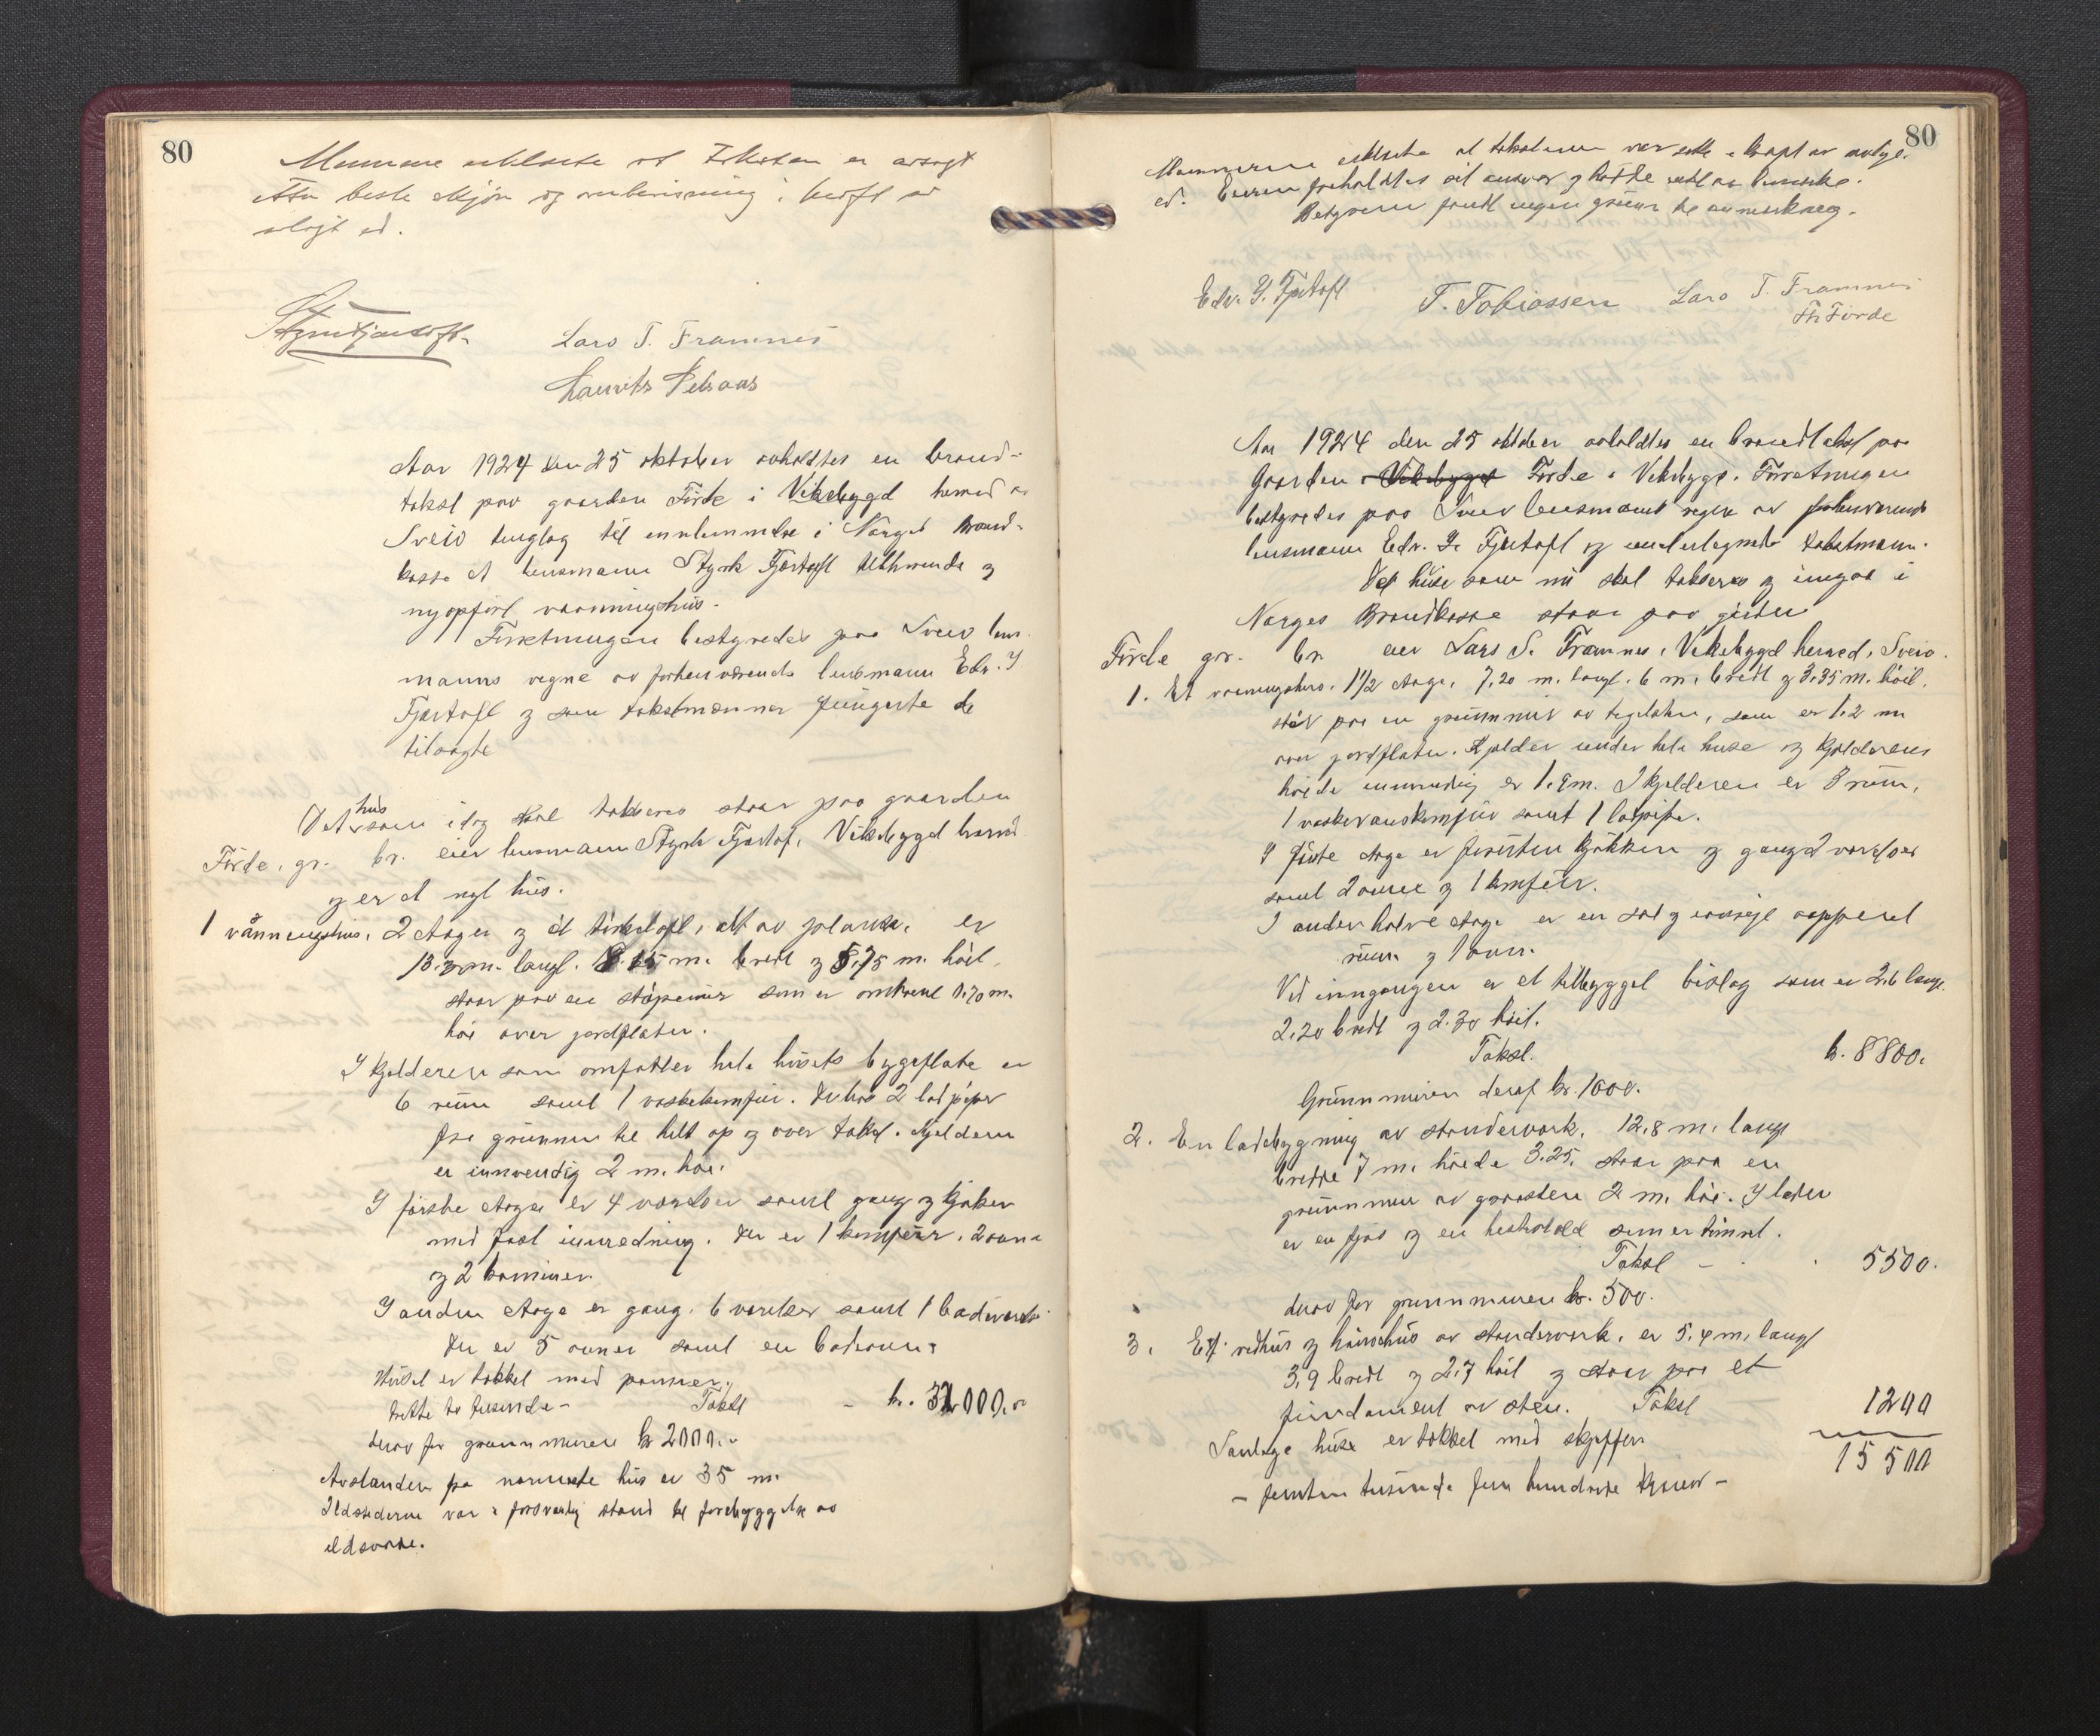 80
Mennene erklærte at taksten er avsagt
etter beste skjøn og overbevisning i kraft av
avlagt ed.
Styrk Fjærtoft
Lars T. Framnes
Laurits
Aar 1924 den 25 oktober avholdtes en brand-
takst paa gaarden Förde i Vikebygd herred av
Sveio tinglag til innlemmelse i Norges Brand-
kasse et lensmann Styrk Fjærtoft tilhørende og
nyopført vaaningshus.
Forretningen bestyredes paa Sveio lens-
manns vegne av forhenværende lensmann Edv. Y.
Fjærtoft og som takstmænner fungerte de
tilsagte
Det hus som idag skal takseres staar paa gaarden
Förde, gr. br. eier lensmann Styrk Fjærtoft, Vikebygd herred
og er et nyt hus.
1 vånningshus, 2 etager og et törkeloft, alt av planker, er
13.30 m. langt. 8.15 m. bredt og 5.75 m. høit.
staar paa en støpemur som er omtrent 1.70 m.
høi over jordflaten.
I kjelderen som omfatter hele husets bygeflate er
6 rum samt 1 vaskekomfür. Der er 2 lødpiper
fra grunnen til helt op og over taket. Kjelderen
er innvendig 2 m. høi.
I første etage er 4 værelser samt gang og kjøken
med fast innredning. Der er 1 komfür, 2 ovne
og 2 kaminer
I anden etage er gang, 6 værelser samt 1 badeværelse
Der er 5 ovner samt en badeovn.
Huset er tækket med panner.
tretti to tusinde - Takst - kr. 32000.00
derav for grunnmuren kr 2000.-
Avstanden fra nærmeste hus er 35 m.
Ildstederne var i forsvarlig stand til forebyggelse av
ildsvaade.
80
Mænnerne erklærte at taksterne var satt i kraft av avlagt
ed. Eieren forholdtes sit ansvar og hadde intet at bemerke.
Bestyreren fandt ingen grunn til anmerkning.
Edv. Y. Fjærtoft T. Tobiassen Lars T. Framnes
Th Förde
Aar 1924 den 25 oktober avholdtes en brandtakst paa
Gaarden i Vikebygd Förde i Vikebygd. Forretningen
bestyredes paa Sveio lensmanns vegne av forhenværende
lensmann Edv. Y. Fjærtoft og undertegnede takstmænn.
Det huse som nu skal takseres og inngaa i
Norges Brandkasse staar paa gaarden
Förde gr. br. eier Lars T. Framnes i Vikebygd herred, Sveio.
1. Et vaaningshus, 1½ etage, 7,20 m. langt, 6 m. bredt og 3.35 m. höit,
står paa en grunnmur av teglsten, som er 1.2 m
over jordflaten. Kjelder under hele huse og kjelderens
höide innvendig er 1.9 m. I kjelderen er 3 rum,
1 vaskevannskomfür samt 1 lødpipe.
I første etage er forsten kjökken og gang 2 værelser
samt 2 ovne og 1 komfür.
I anden halve etage er en sal og ellers uoppredt
rum og 1 ovn.
Ved inngangen er et tilbygget bislag som er 2.6 langt
2,20 bredt og 2.30 höit.
Takst. kr. 8800.
Grunnmuren deraf kr. 1000.
2. En ladebygning av standerverk, 12,8 m. langt
bredde 7 m. höide 3.25, staar paa en
grunnmur av graasten 2 m. høi. I laden
er en fjøs og en hestestald som er tömret.
Takst - 5500.
derav for grunnmuren kr. 500.
3. Et vedhus og hönsehus av standerverk, er 5,4 m. langt
3,9 bredt og 2,7 höit og staar paa et
fundament av sten. Takst 1200
Samtlige huse er tækket med skiffer
15500
- femten tusinde fem hundrede kroner -